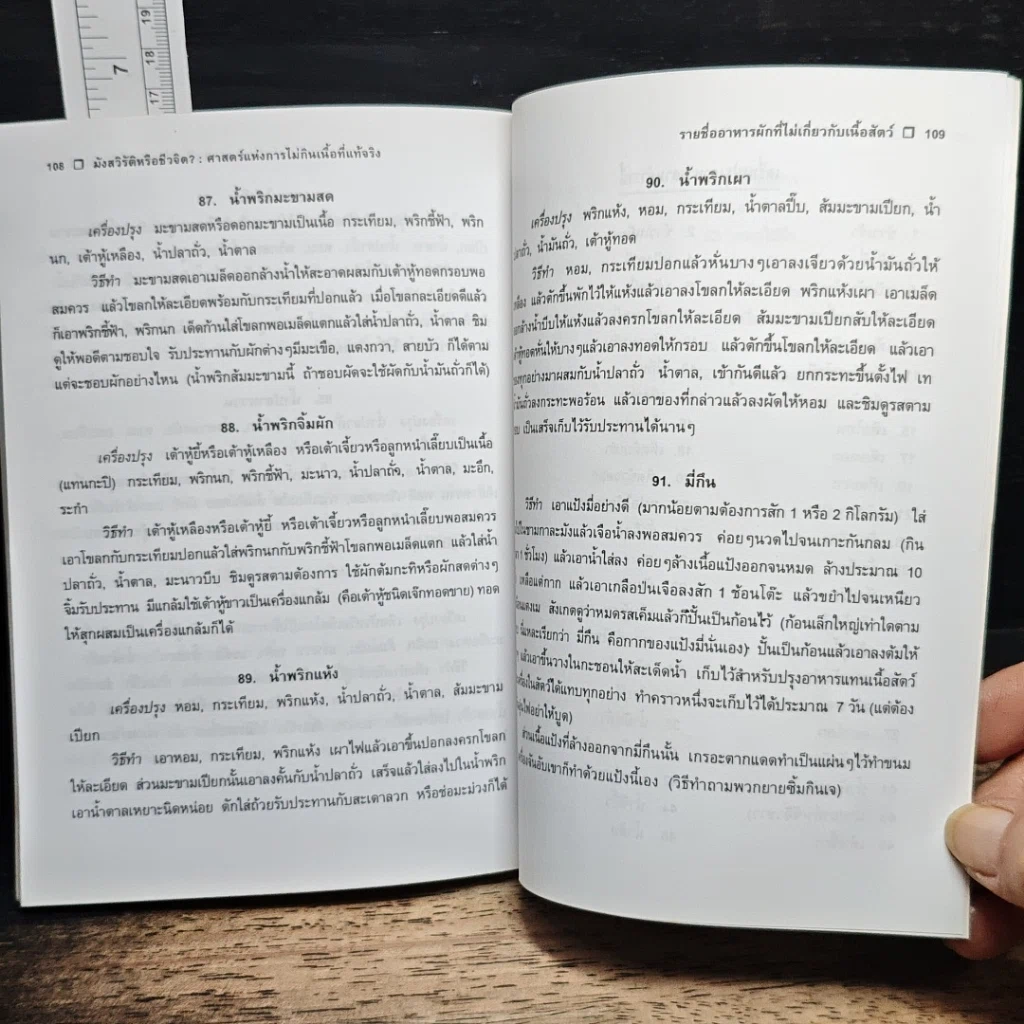 19
18
17
7
108 ❐ มังสวิรัติหรือชีวจิต? : ศาสตร์แห่งการไม่กินเนื้อที่แท้จริง
87. น้ำพริกมะขามสด
เครื่องปรุง มะขามสดหรือดอกมะขามเป็นเนื้อ กระเทียม, พริกชี้ฟ้า, พริก
นก, เต้าหู้เหลือง, น้ำปลาถั่ว, น้ำตาล
วิธีทำ มะขามสดเอาเมล็ดออกล้างน้ำให้สะอาดผสมกับเต้าหู้ทอดกรอบพอ
สมควร แล้วโขลกให้ละเอียดพร้อมกับกระเทียมที่ปอกแล้ว เมื่อโขลกละเอียดดีแล้ว
ก็เอาพริกชี้ฟ้า, พริกนก เด็ดก้านใส่โขลกพอเมล็ดแตกแล้วใส่น้ำปลาถั่ว, น้ำตาล ชิม
ดูให้พอดีตามชอบใจ รับประทานกับผักต่างๆมีมะเขือ, แตงกวา, สายบัว ก็ได้ตาม
แต่จะชอบผักอย่างไหน (น้ำพริกส้มมะขามนี้ ถ้าชอบผัดจะใช้ผัดกับน้ำมันถั่วก็ได้)
88. น้ำพริกจิ้มผัก
เครื่องปรุง เต้าหู้ยี้หรือเต้าหู้เหลือง หรือเต้าเจี้ยวหรือลูกหนำเลี๊ยบเป็นเนื้อ
(แทนกะปิ) กระเทียม, พริกนก, พริกชี้ฟ้า, มะนาว, น้ำปลาถั่ว, น้ำตาล, มะอึก,
ระกำ
วิธีทำ เต้าหู้เหลืองหรือเต้าหู้ยี้ หรือเต้าเจี้ยวหรือลูกหนำเลี๊ยบพอสมควร
เอาโขลกกับกระเทียมปอกแล้วใส่พริกนกกับพริกชี้ฟ้าโขลกพอเมล็ดแตก แล้วใส่น้ำ
ปลาถั่ว, น้ำตาล, มะนาวบีบ ชิมดูรสตามต้องการ ใช้ผักต้มกะทิหรือผักสดต่างๆ
จิ้มรับประทาน มีแกล้มใช้เต้าหู้ขาวเป็นเครื่องแกล้ม (คือเต้าหู้ชนิดเจ๊กทอดขาย) ทอด
ให้สุกผสมเป็นเครื่องแกล้มก็ได้
89. น้ำพริกแห้ง
เครื่องปรุง หอม, กระเทียม, พริกแห้ง, น้ำปลาถั่ว, น้ำตาล, ส้มมะขาม
เปียก
วิธีทำ เอาหอม, กระเทียม, พริกแห้ง เผาไฟแล้วเอาขึ้นปอกลงครกโขลก
ให้ละเอียด ส่วนมะขามเปียกนั้นเอาลงคั้นกับน้ำปลาถั่ว เสร็จแล้วใส่ลงไปในน้ำพริก
เอาน้ำตาลเหยาะนิดหน่อย ตักใส่ถ้วยรับประทานกับสะเดาลวก หรือช่อมะม่วงก็ได้
รายชื่ออาหารผักที่ไม่เกี่ยวกับเนื้อสัตว์ ❐ 109
90. น้ำพริกเผา
เครื่องปรุง พริกแห้ง, หอม, กระเทียม, น้ำตาลปี๊บ, ส้มมะขามเปียก, น้ำ
ปลาถั่ว, น้ำมันถั่ว, เต้าหู้ทอด
วิธีทำ หอม, กระเทียมปอกแล้วหั่นบางๆเอาลงเจียวด้วยน้ำมันถั่วให้
แล้วตักขึ้นพักไว้ให้แห้งแล้วเอาลงโขลกให้ละเอียด พริกแห้งเผา เอาเมล็ด
น้ำบีบให้แห้งแล้วลงครกโขลกให้ละเอียด ส้มมะขามเปียกสับให้ละเอียด
หั่นให้บางๆแล้วเอาลงทอดให้กรอบ แล้วตักขึ้นโขลกให้ละเอียด แล้วเอา
ทุกอย่างมาผสมกับน้ำปลาถั่ว น้ำตาล, เข้ากันดีแล้ว ยกกระทะขึ้นตั้งไฟ เท
ลงกระทะพอร้อน แล้วเอาของที่กล่าวแล้วลงผัดให้หอม และชิมดูรสตาม
เป็นเสร็จเก็บไว้รับประทานได้นานๆ
91. มี่กึน
วิธีทำ เอาแป้งมี่อย่างดี (มากน้อยตามต้องการสัก 1 หรือ 2 กิโลกรัม) ใส่
ชามกาละมังแล้วเจือน้ำลงพอสมควร ค่อยๆนวดไปจนเกาะกันกลม (กิน
1 ชั่วโมง) แล้วเอาน้ำใส่ลง ค่อยๆล้างเนื้อแป้งออกจนหมด ล้างประมาณ 10
เหลือแต่กาก แล้วเอาเกลือป่นเจือลงสัก 1 ช้อนโต๊ะ แล้วขยำไปจนเหนียว
สังเกตดูว่าหมดรสเค็มแล้วก็ปั้นเป็นก้อนไว้ (ก้อนเล็กใหญ่เท่าใดตาม
นี่แหละเรียกว่า มี่กึน คือกากของแป้งมี่นั่นเอง) ปั้นเป็นก้อนแล้วเอาลงต้มให้
แล้วเอาขึ้นวางในกะชอนให้สะเด็ดน้ำ เก็บไว้สำหรับปรุงอาหารแทนเนื้อสัตว์
สัตว์ได้แทบทุกอย่าง ทำคราวหนึ่งจะเก็บไว้ได้ประมาณ 7 วัน (แต่ต้อง
อย่าให้บูด)
ส่วนเนื้อแป้งที่ล้างออกจากมี่กึนนั้น เกรอะตากแดดทำเป็นแผ่นๆไว้ทำขนม
เขาก็ทำด้วยแป้งนี้เอง (วิธีทำถามพวกยายซิ้มกินเจ)